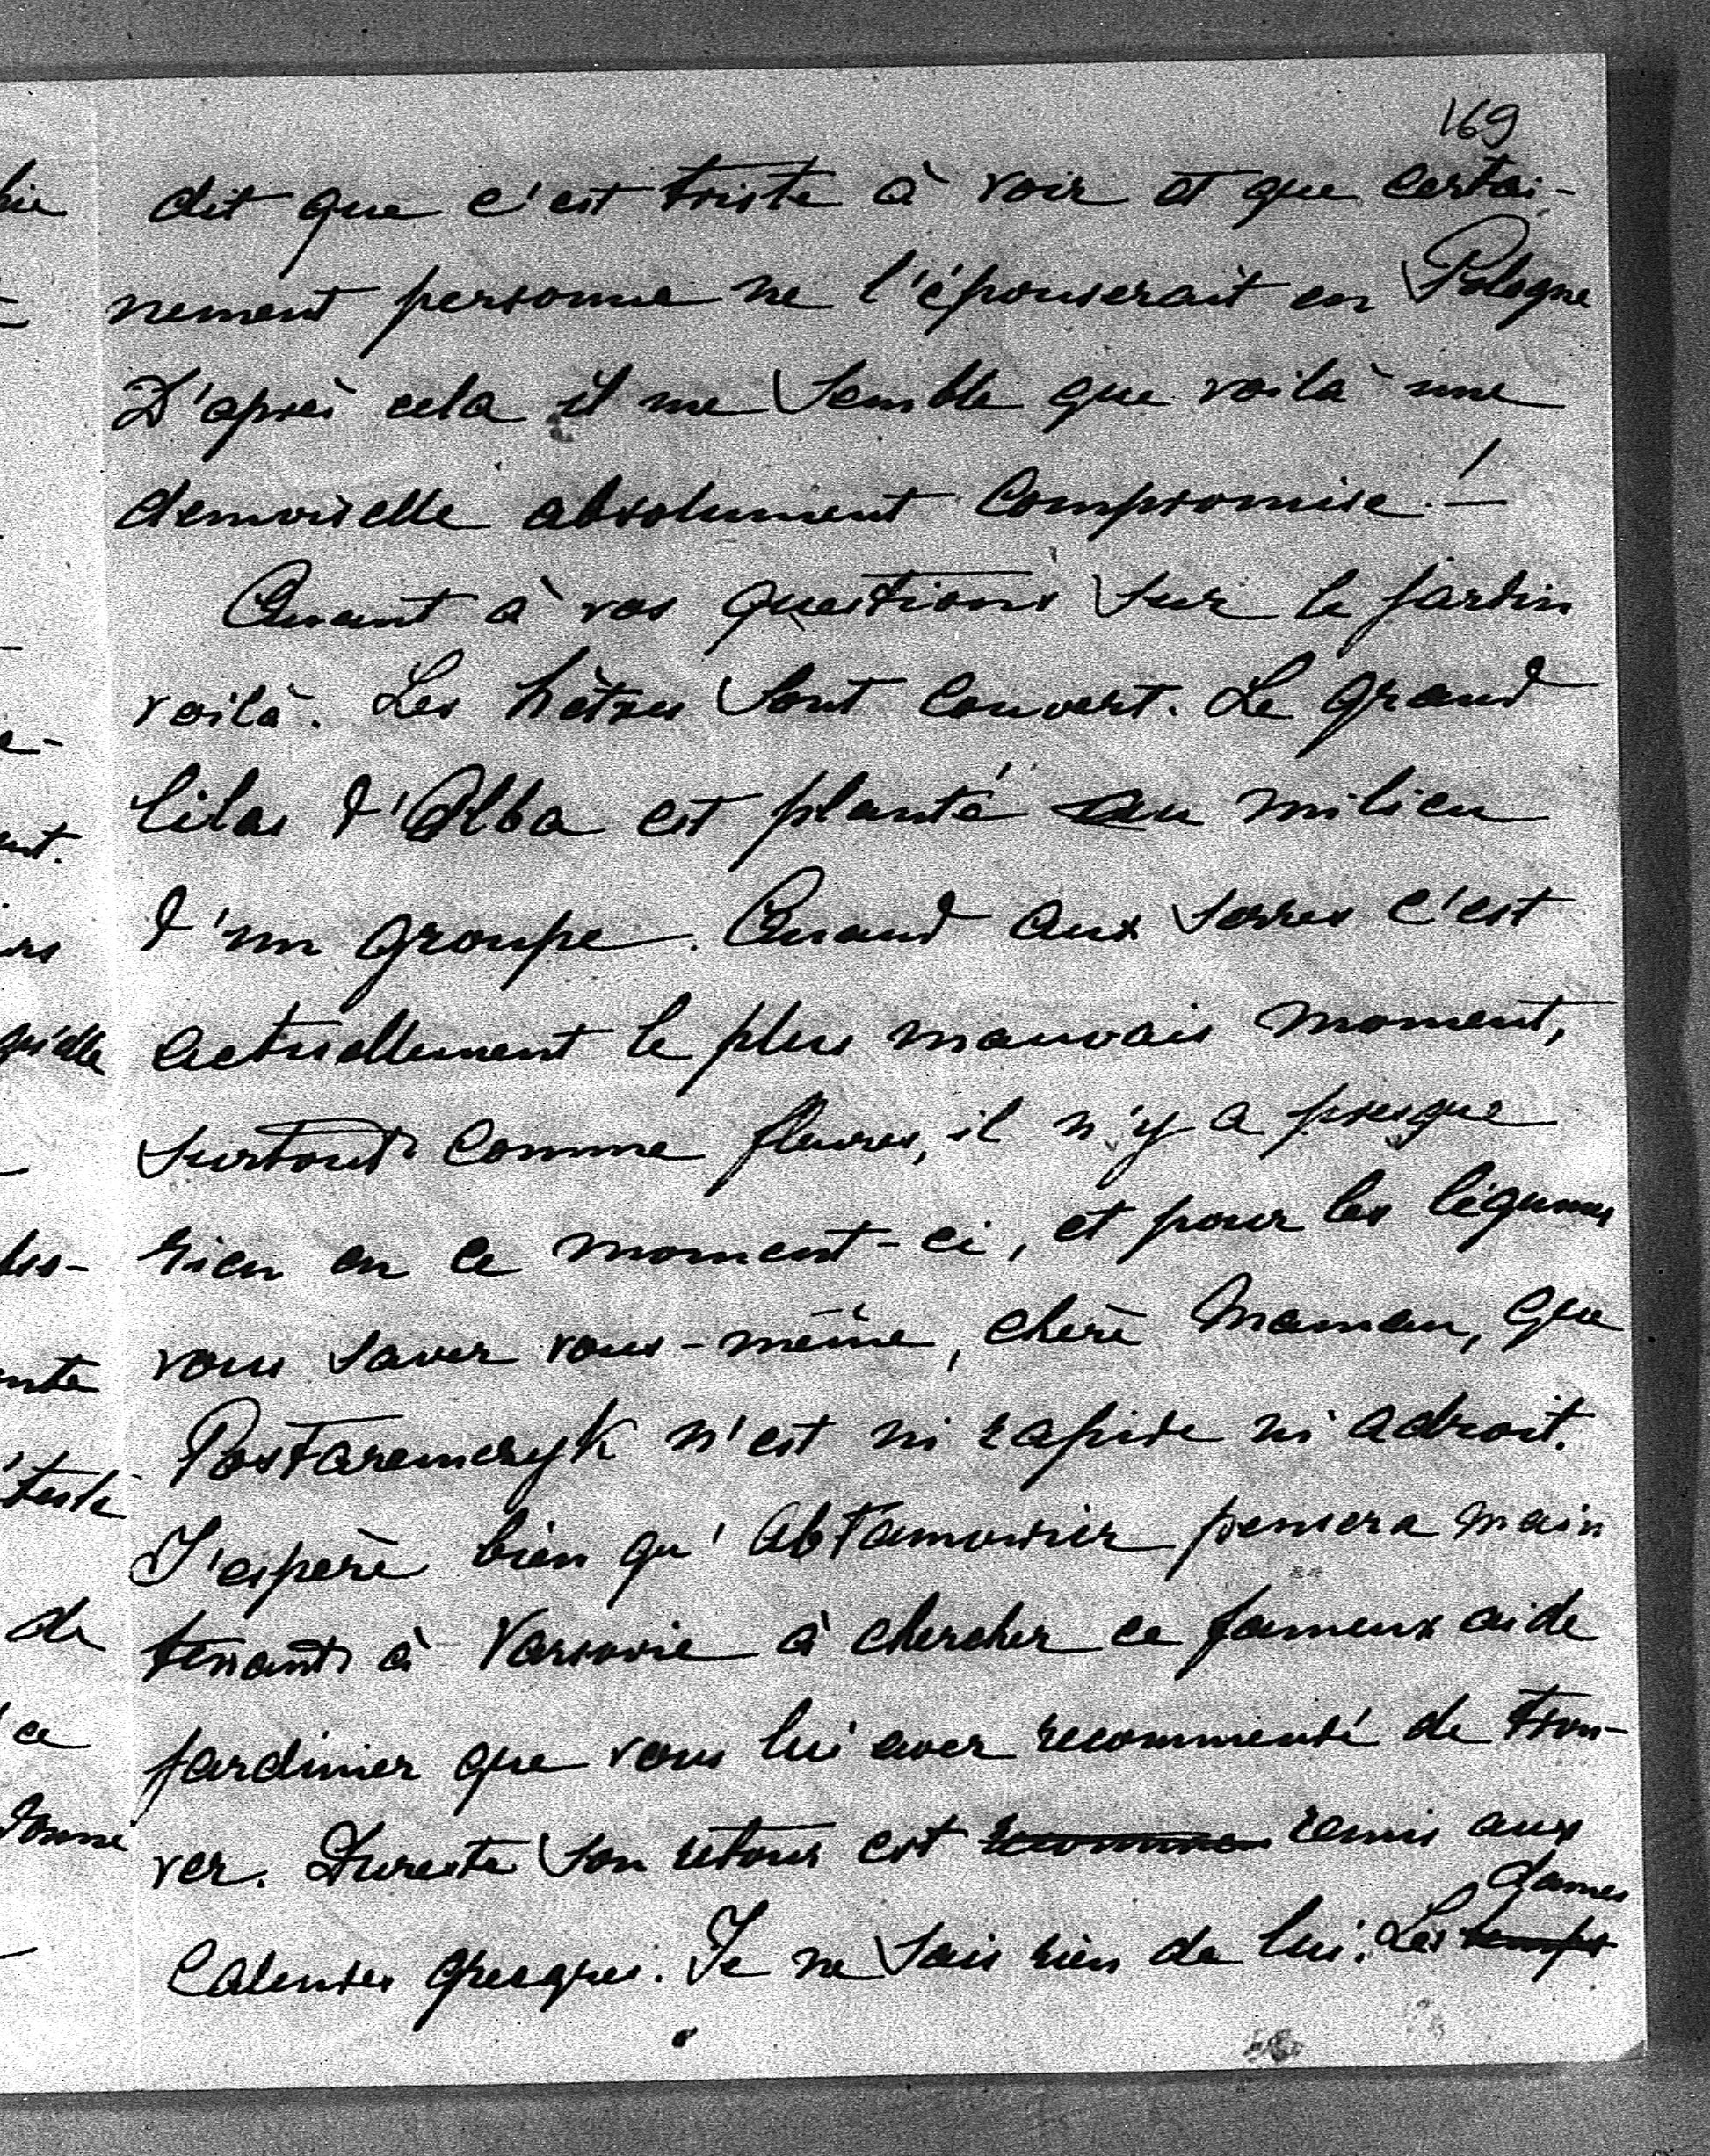 169
dit que c'est triste à voir et que certai-
nement personne ne l'épouserait en Pologne
D'après cela il me semble que voilà une
demoiselle absolument compromise! —
Quant à vos questions sur le jardin
voilà. Les hêtres sont couvert. Le grand
lilas d'Alba est planté au milieu
d'un groupe. Quand aux serres c'est
actuellement le plus mauvais moment,
surtout comme fleures, il n'y a presque
rien en ce moment-ci, et pour les légumes
vous saver vous-même, chère Maman, que
Postaremczyk n'est ni rapide ni adroit.
J'espère bien qu' pensera main
tenant à Varsovie à chercher ce fameux aide
jardinier que vous lui aver recommendé de trou-
ver. Dureste son retour est remis aux
dames
Calendes grecques. Je ne sais rien de lui. Les